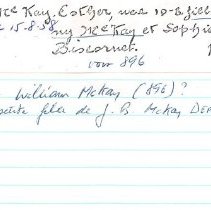 Mc Kay, Esther, née 10-8 fille
15-8-58 Mc Kay et Sophie
Biscornet.
voir 896
William McKay (896)?
petite fille de J. B McKay